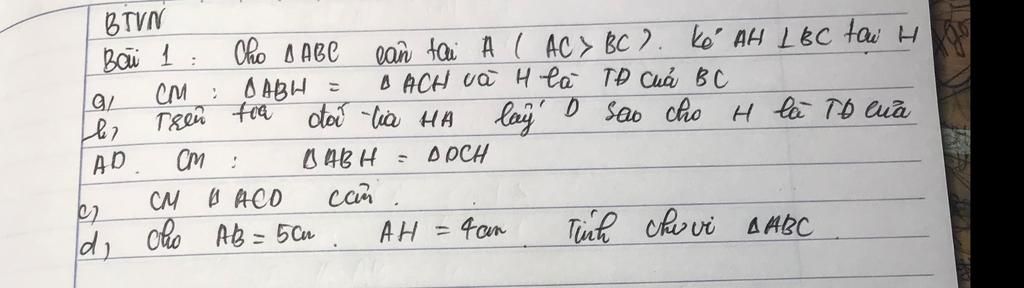 BTVN
Bài 1 : Cho ΔABC cân tại A ( AC > BC ). Kẻ AH ⊥ BC tại H
a, CM : ΔABH = ΔACH và H là TĐ của BC
b, Trên tia đối tia HA lấy D sao cho H là TĐ của
AD. CM : ΔABH = ΔDCH
c, CM ΔACD cân.
d, Cho AB = 5cm. AH = 4cm. Tính chu vi ΔABC